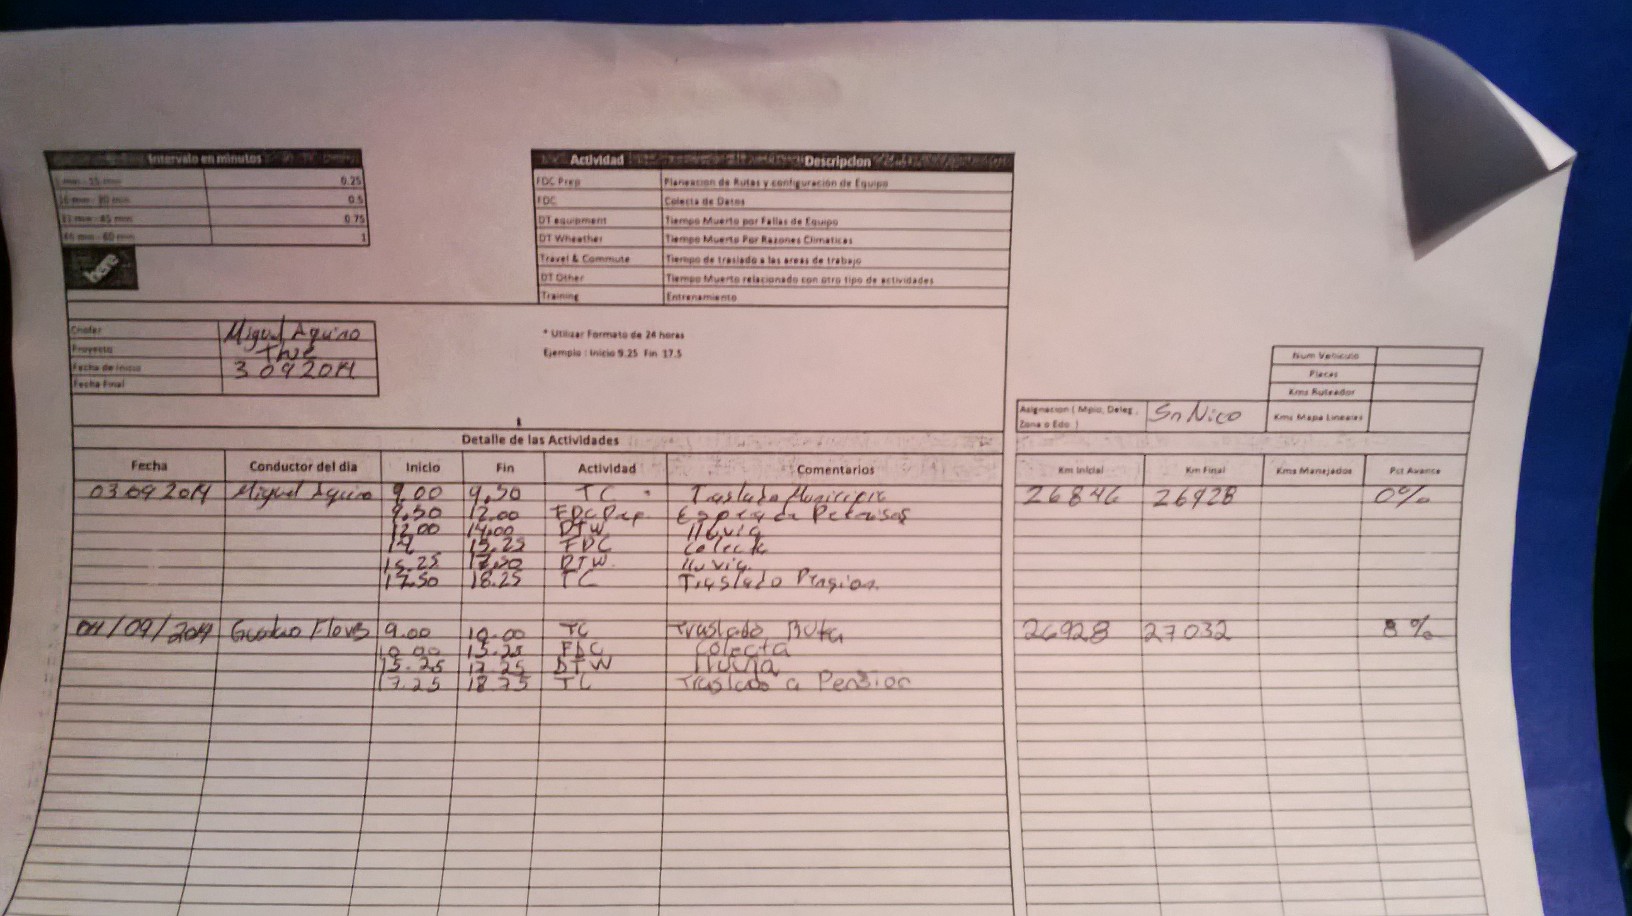 Intervalo en minutos
min - 15 min 0.25
16 min - 30 min 0.5
31 min - 45 min 0.75
46 min - 60 min 1
here
Actividad Descripcion
FDC Prep Planeacion de Rutas y configuración de Equipo
FDC Colecta de Datos
DT equipment Tiempo Muerto por Fallas de Equipo
DT Wheather Tiempo Muerto Por Razones Climaticas
Travel & Commute Tiempo de traslado a las areas de trabajo
DT Other Tiempo Muerto relacionado con otro tipo de actividades
Training Entrenamiento
Chofer Miguel Aquino
Proyecto
Fecha de Inicio 3 09 2014
Fecha Final
* Utilizar Formato de 24 horas
Ejemplo : Inicio 9.25 Fin 17.5
Num Vehiculo
Placas
Kms Ruteador
Kms Mapa Lineales
Asignacion ( Mpio, Deleg, Zona o Edo ) Sn Nico
Detalle de las Actividades
Fecha Conductor del dia Inicio Fin Actividad Comentarios Km Inicial Km Final Kms Manejados Pct Avance
03 09 2014 Miguel Aquino 9.00 9.50 TC Traslado Municipio 26846 26928 0%
9.50 12.00 FDC Prep Espera de Permisos
12.00 14.00 DTW lluvia
14 15.25 FDC Colecta
15.25 17.50 DTW lluvia
17.50 18.25 TC Traslado Pension
04/09/2014 Gustavo Flores 9.00 10.00 TC Traslado Ruta 26928 27032 8%
10.00 15.25 FDC Colecta
15.25 17.25 DTW lluvia
17.25 18.25 TC Traslado a Pension